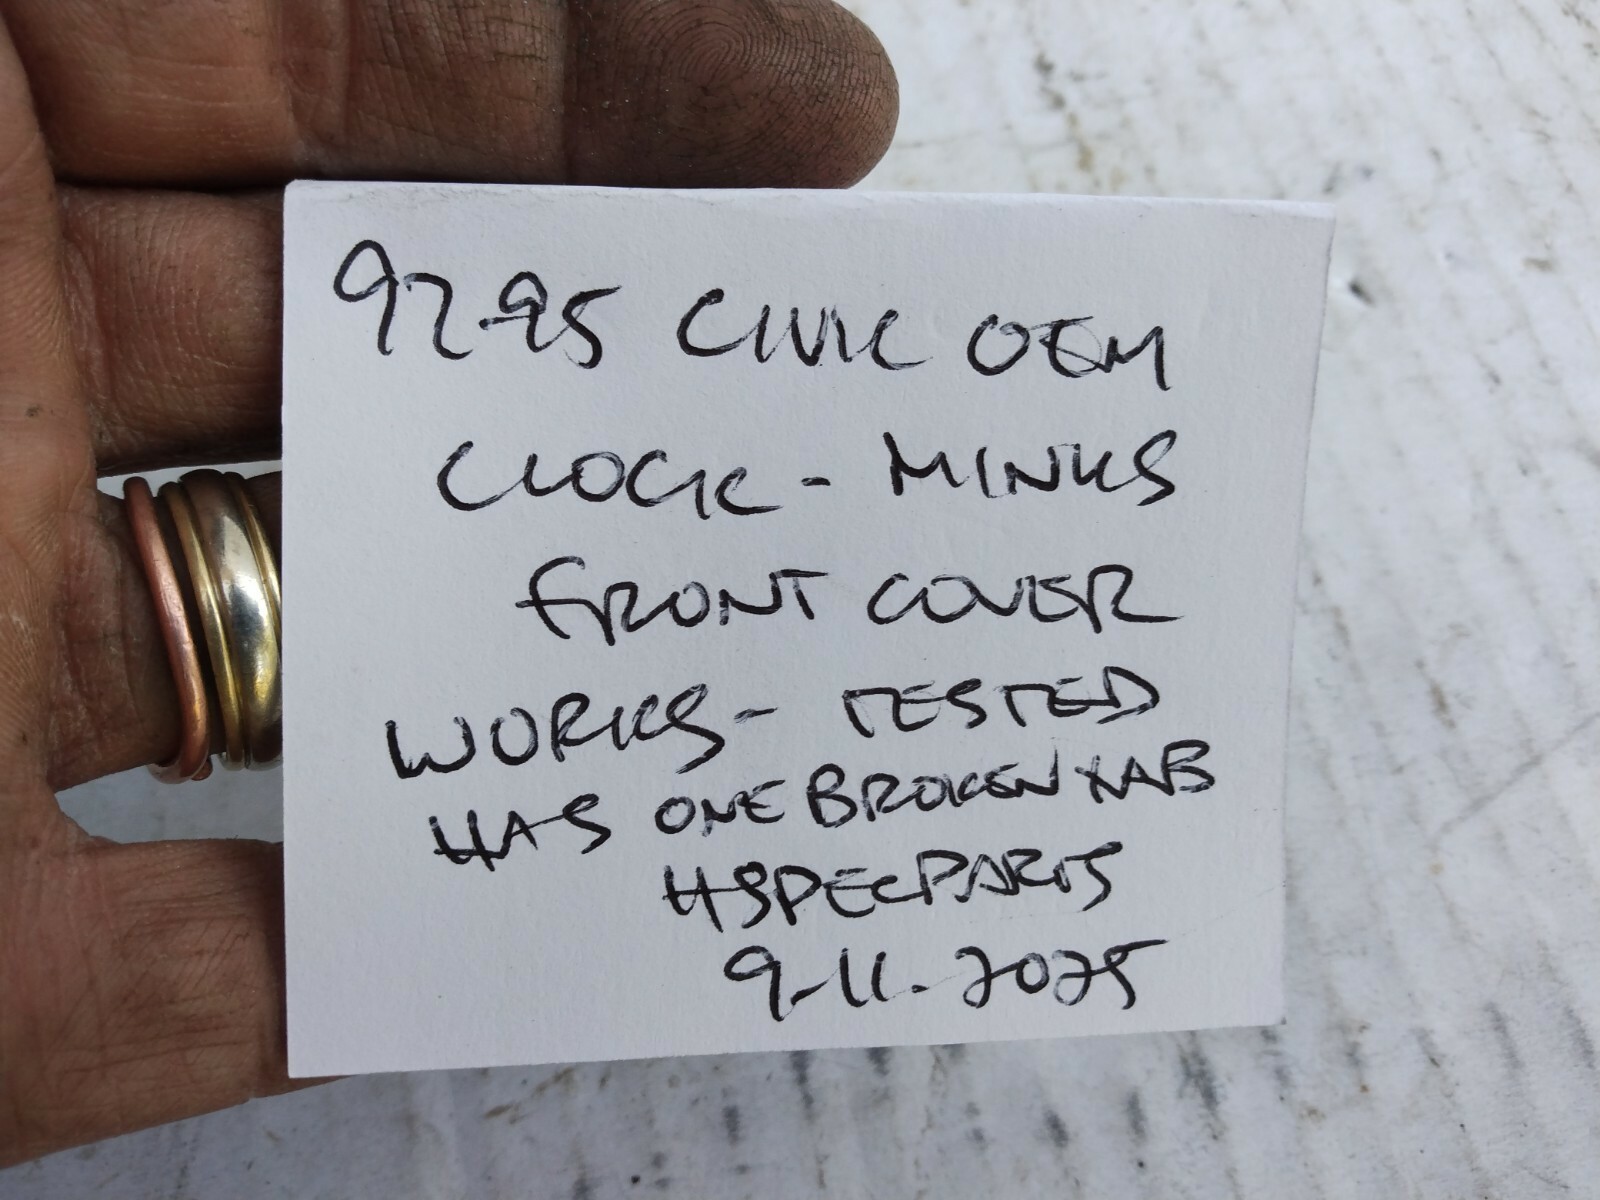 92-95 CIVIC OEM
CLOCK - MINUS
FRONT COVER
WORKS - TESTED
HAS ONE BROKEN TAB
HSPECPARTS
9.11.2025